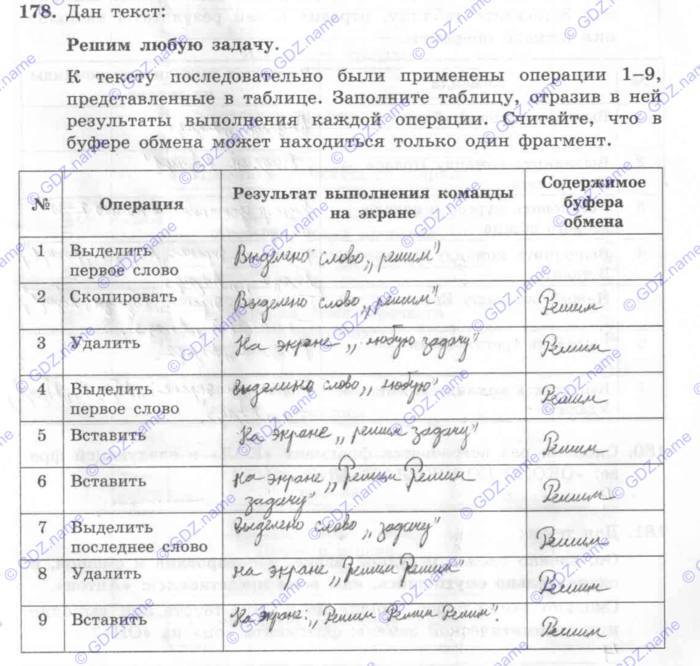 178. Дан текст:
Решим любую задачу.
К тексту последовательно были применены операции 1–9,
представленные в таблице. Заполните таблицу, отразив в ней
результаты выполнения каждой операции. Считайте, что в
буфере обмена может находиться только один фрагмент.
№ Операция Результат выполнения команды на экране Содержимое буфера обмена
1 Выделить первое слово Выделено слово „решим"
2 Скопировать Выделено слово „решим" Решим
3 Удалить На экране „любую задачу" Решим
4 Выделить первое слово выделено слово „любую" Решим
5 Вставить На экране „решим задачу" Решим
6 Вставить На экране „Решим Решим задачу" Решим
7 Выделить последнее слово выделено слово „задачу" Решим
8 Удалить на экране „Решим Решим" Решим
9 Вставить На экране: „Решим Решим Решим". Решим
© GDZ.name